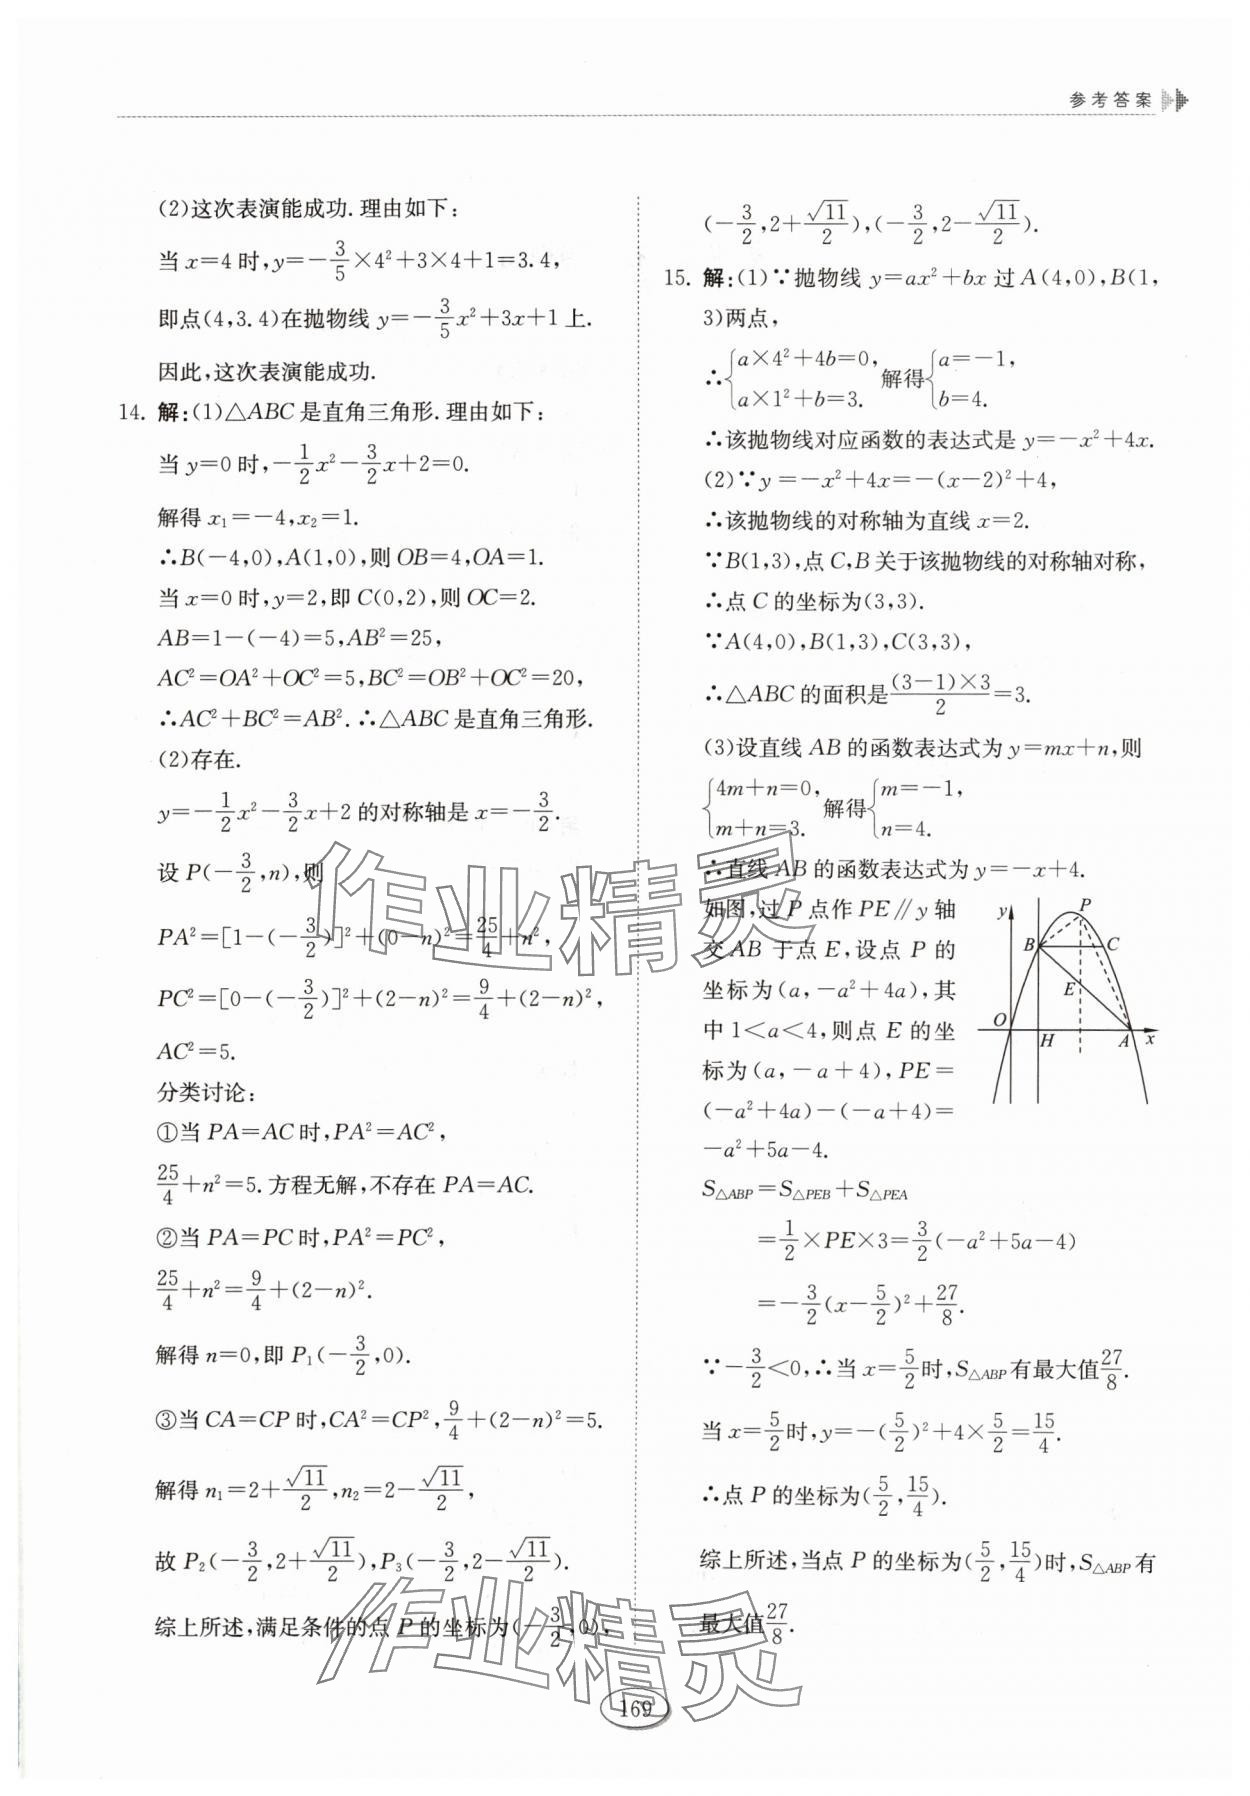 参考答案
(2)这次表演能成功.理由如下:
当 x=4 时,y=-3/5×4²+3×4+1=3.4,
即点(4,3.4)在抛物线 y=-3/5x²+3x+1 上.
因此,这次表演能成功.
14. 解:(1)△ABC 是直角三角形.理由如下:
当 y=0 时,-1/2x²-3/2x+2=0.
解得 x₁=-4,x₂=1.
∴B(-4,0),A(1,0),则 OB=4,OA=1.
当 x=0 时,y=2,即 C(0,2),则 OC=2.
AB=1-(-4)=5,AB²=25,
AC²=OA²+OC²=5,BC²=OB²+OC²=20,
∴AC²+BC²=AB².∴△ABC 是直角三角形.
(2)存在.
y=-1/2x²-3/2x+2 的对称轴是 x=-3/2.
设 P(-3/2,n),则
PA²=[1-(-3/2)]²+(0-n)²=25/4+n²,
PC²=[0-(-3/2)]²+(2-n)²=9/4+(2-n)²,
AC²=5.
分类讨论:
①当 PA=AC 时,PA²=AC²,
25/4+n²=5.方程无解,不存在 PA=AC.
②当 PA=PC 时,PA²=PC²,
25/4+n²=9/4+(2-n)².
解得 n=0,即 P₁(-3/2,0).
③当 CA=CP 时,CA²=CP²,9/4+(2-n)²=5.
解得 n₁=2+√11/2,n₂=2-√11/2,
故 P₂(-3/2,2+√11/2),P₃(-3/2,2-√11/2).
综上所述,满足条件的点 P 的坐标为(-3/2,0),
(-3/2,2+√11/2),(-3/2,2-√11/2).
15. 解:(1)∵抛物线 y=ax²+bx 过 A(4,0),B(1,
3)两点,
∴{a×4²+4b=0, a×1²+b=3. 解得{a=-1, b=4.
∴该抛物线对应函数的表达式是 y=-x²+4x.
(2)∵y=-x²+4x=-(x-2)²+4,
∴该抛物线的对称轴为直线 x=2.
∵B(1,3),点 C,B 关于该抛物线的对称轴对称,
∴点 C 的坐标为(3,3).
∵A(4,0),B(1,3),C(3,3),
∴△ABC 的面积是(3-1)×3/2=3.
(3)设直线 AB 的函数表达式为 y=mx+n,则
{4m+n=0, m+n=3. 解得{m=-1, n=4.
∴直线 AB 的函数表达式为 y=-x+4.
如图,过 P 点作 PE∥y 轴
交 AB 于点 E,设点 P 的
坐标为(a,-a²+4a),其
中 1<a<4,则点 E 的坐
标为(a,-a+4),PE=
(-a²+4a)-(-a+4)=
-a²+5a-4.
y
P
B
C
E
O
H
A
x
S△ABP=S△PEB+S△PEA
=1/2×PE×3=3/2(-a²+5a-4)
=-3/2(x-5/2)²+27/8.
∵-3/2<0,∴当 x=5/2时,S△ABP有最大值27/8.
当 x=5/2时,y=-(5/2)²+4×5/2=15/4.
∴点 P 的坐标为(5/2,15/4).
综上所述,当点 P 的坐标为(5/2,15/4)时,S△ABP有
最大值27/8.
作业精灵
作业精灵
169